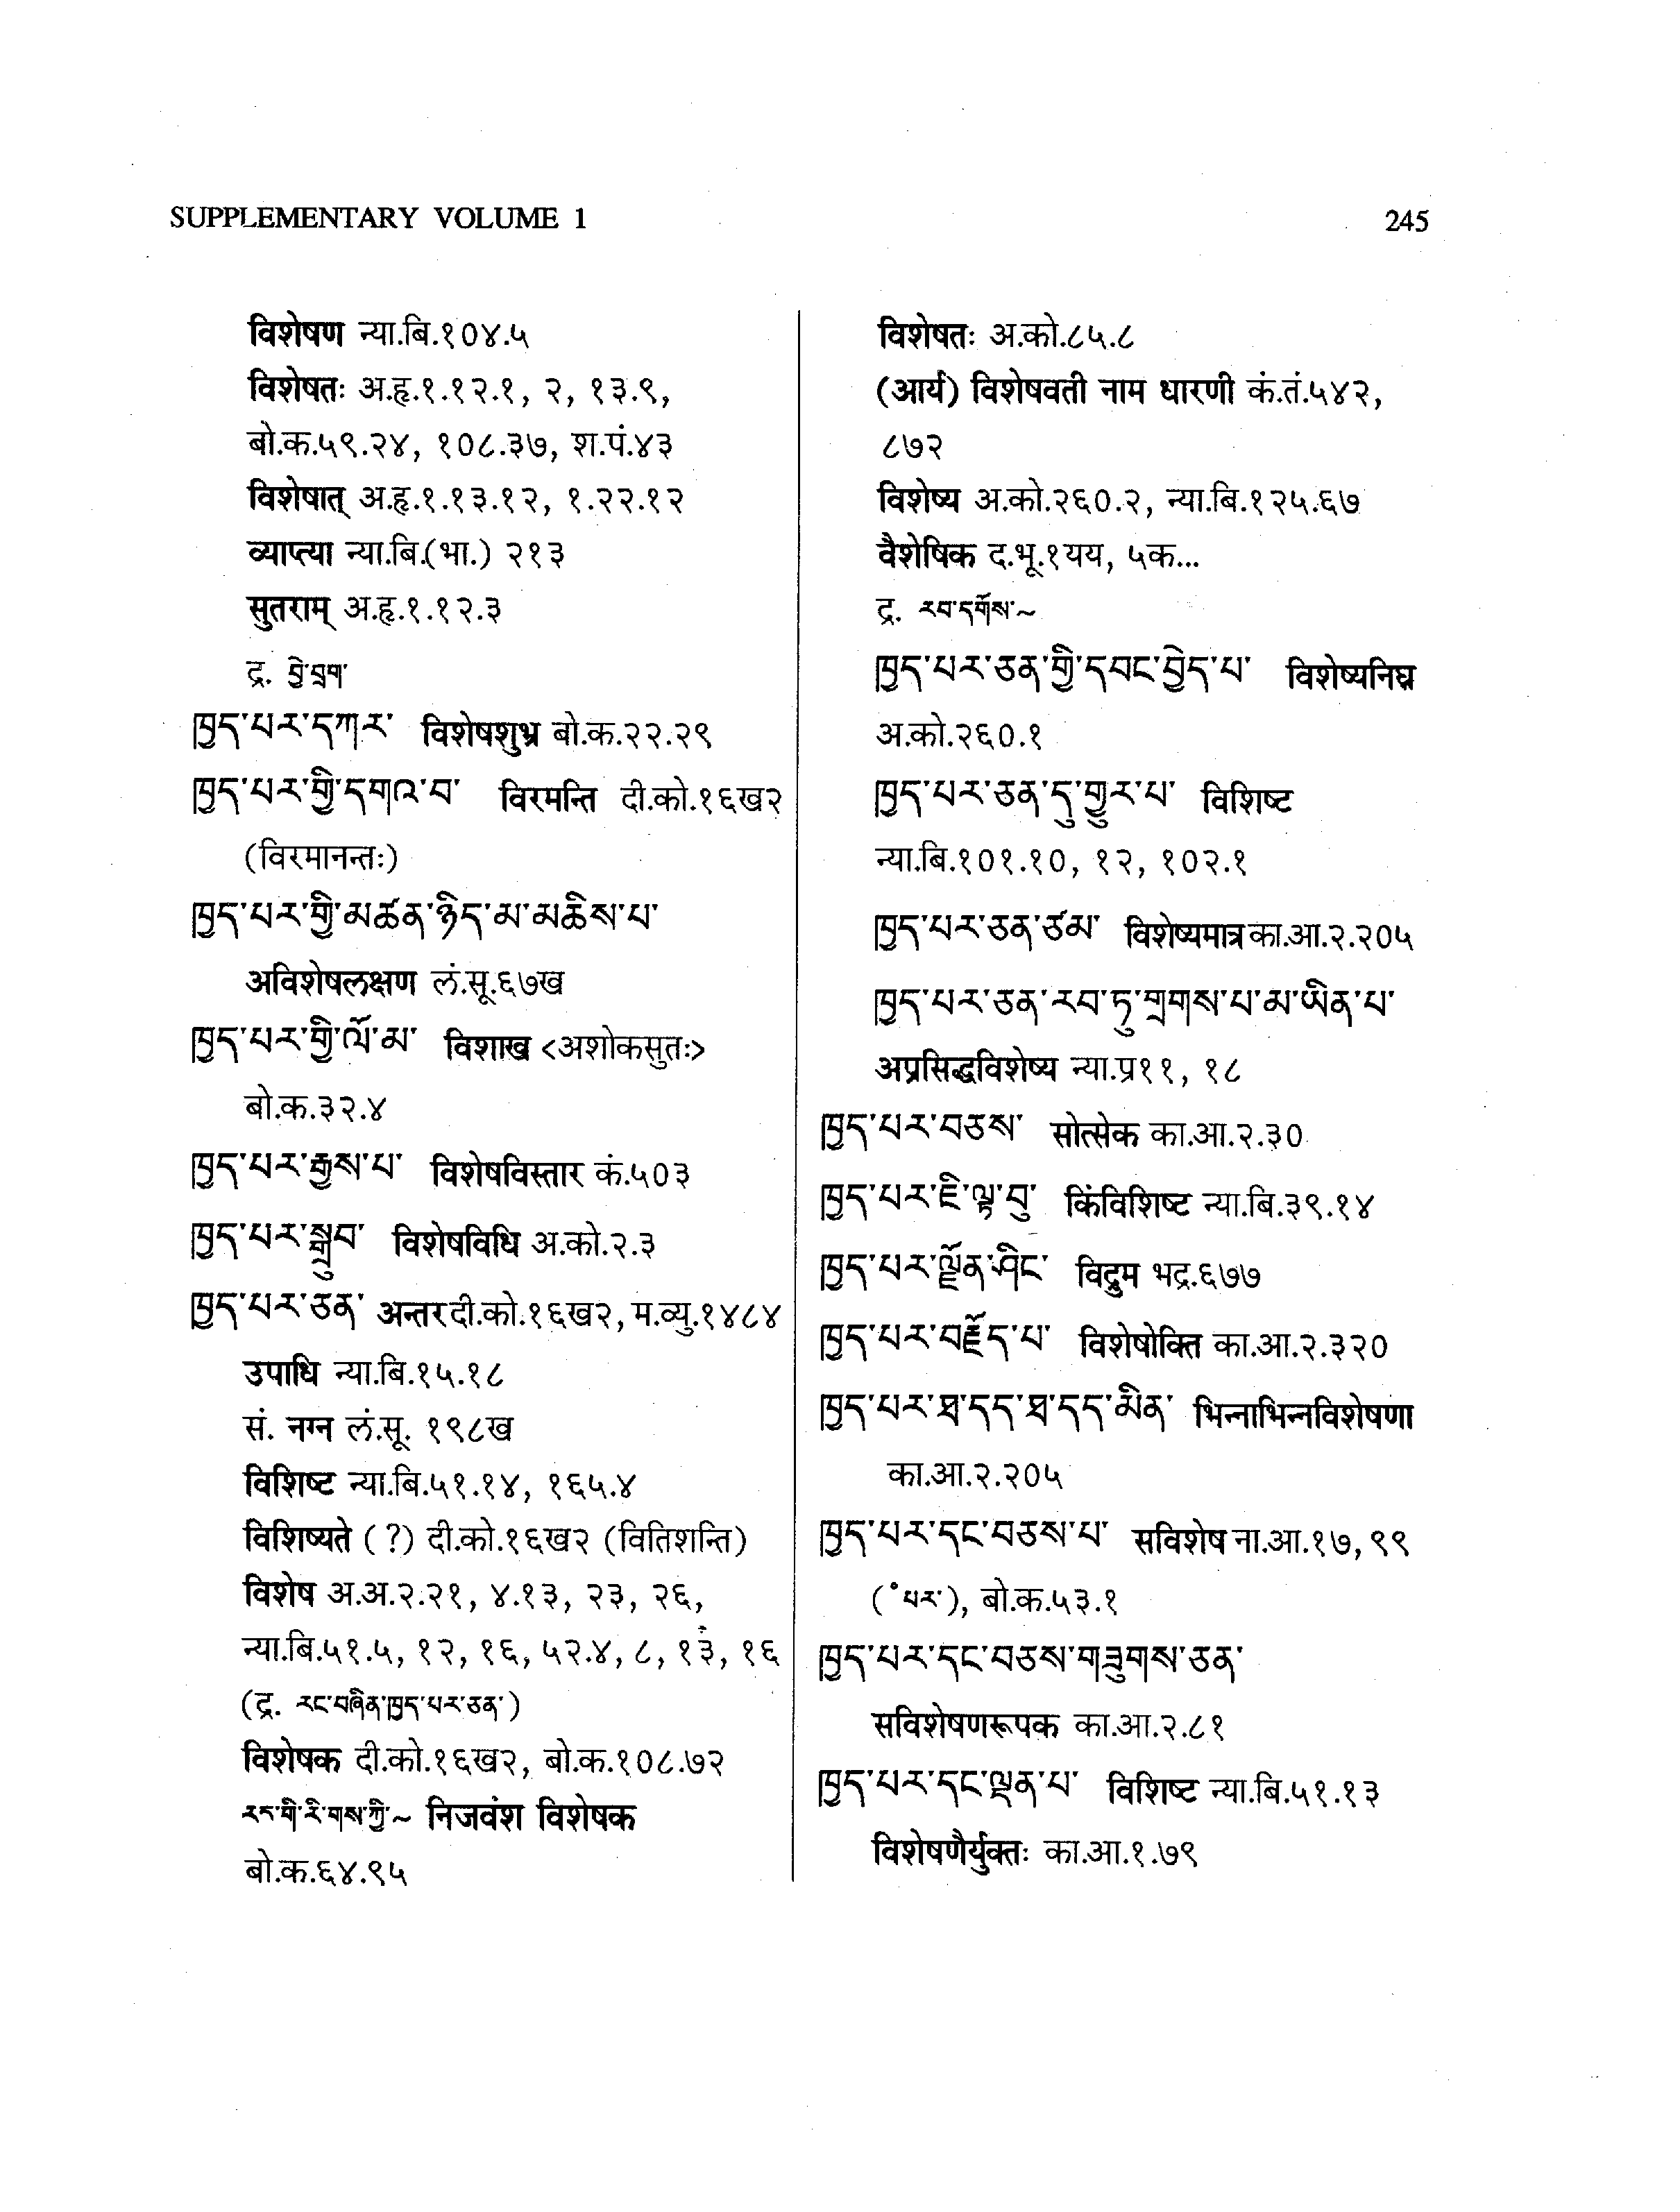 SUPPLEMENTARY VOLUME 1
245
विशेषण न्या.बि.१०४.५
विशेषतः अ.हृ.१.१२.१, २, १३.९,
बो.क.५९.२४, १०८.३७, श.पं.४३
विशेषात् अ.हृ.१.१३.१२, १.२२.१२
व्याप्त्या न्या.बि.(भा.) २१३
सुतराम् अ.हृ.१.१२.३
द्र. བྱེ་བྲག་
ཁྱད་པར་དཀར་ विशेषशुभ्र बो.क.२२.२९
ཁྱད་པར་གྱི་དགའ་བ་ विरमन्ति दी.को.१६ख२
(विरमानन्तः)
ཁྱད་པར་གྱི་མཚན་ཉིད་མ་མཆིས་པ་
अविशेषलक्षण लं.सू.६७ख
ཁྱད་པར་གྱི་ལོ་མ་ विशाख <अशोकसुतः>
बो.क.३२.४
ཁྱད་པར་རྒྱས་པ་ विशेषविस्तार कं.५०३
ཁྱད་པར་སྒྲུབ་ विशेषविधि अ.को.२.३
ཁྱད་པར་ཅན་ अन्तर दी.को.१६ख२, म.व्यु.१४८४
उपाधि न्या.बि.१५.१८
सं. नग्न लं.सू. १९८ख
विशिष्ट न्या.बि.५१.१४, १६५.४
विशिष्यते (?) दी.को.१६ख२ (वितिशन्ति)
विशेष अ.अ.२.२१, ४.१३, २३, २६,
न्या.बि.५१.५, १२, १६, ५२.४, ८, १३, १६
(द्र. རང་བཞིན་ཁྱད་པར་ཅན་)
विशेषक दी.को.१६ख२, बो.क.१०८.७२
རང་གི་རིགས་ཀྱི་~ निजवंश विशेषक
बो.क.६४.९५
विशेषतः अ.को.८५.८
(आर्य) विशेषवती नाम धारणी कं.तं.५४२,
८७२
विशेष्य अ.को.२६०.२, न्या.बि.१२५.६७
वैशेषिक द.भू.१यय, ५क...
द्र. རབ་དགོས་~
ཁྱད་པར་ཅན་གྱི་དབང་བྱེད་པ་ विशेष्यनिघ्न
अ.को.२६०.१
ཁྱད་པར་ཅན་དུ་གྱུར་པ་ विशिष्ट
न्या.बि.१०१.१०, १२, १०२.१
ཁྱད་པར་ཅན་ཙམ་ विशेष्यमात्र का.आ.२.२०५
ཁྱད་པར་ཅན་རབ་ཏུ་གྲགས་པ་མ་ཡིན་པ་
अप्रसिद्धविशेष्य न्या.प्र११, १८
ཁྱད་པར་བཅས་ सोत्सेक का.आ.२.३०
ཁྱད་པར་ཇི་ལྟ་བུ་ किंविशिष्ट न्या.बि.३९.१४
ཁྱད་པར་ལྗོན་ཤིང་ विद्रुम भद्र.६७७
ཁྱད་པར་བརྗོད་པ་ विशेषोक्ति का.आ.२.३२०
ཁྱད་པར་ཐ་དད་ཐ་དད་མིན་ भिन्नाभिन्नविशेषणा
का.आ.२.२०५
ཁྱད་པར་དང་བཅས་པ་ सविशेष ना.आ.१७, ९९
(°པར་), बो.क.५३.१
ཁྱད་པར་དང་བཅས་གཟུགས་ཅན་
सविशेषणरूपक का.आ.२.८१
ཁྱད་པར་དང་ལྡན་པ་ विशिष्ट न्या.बि.५१.१३
विशेषणैर्युक्तः का.आ.१.७९